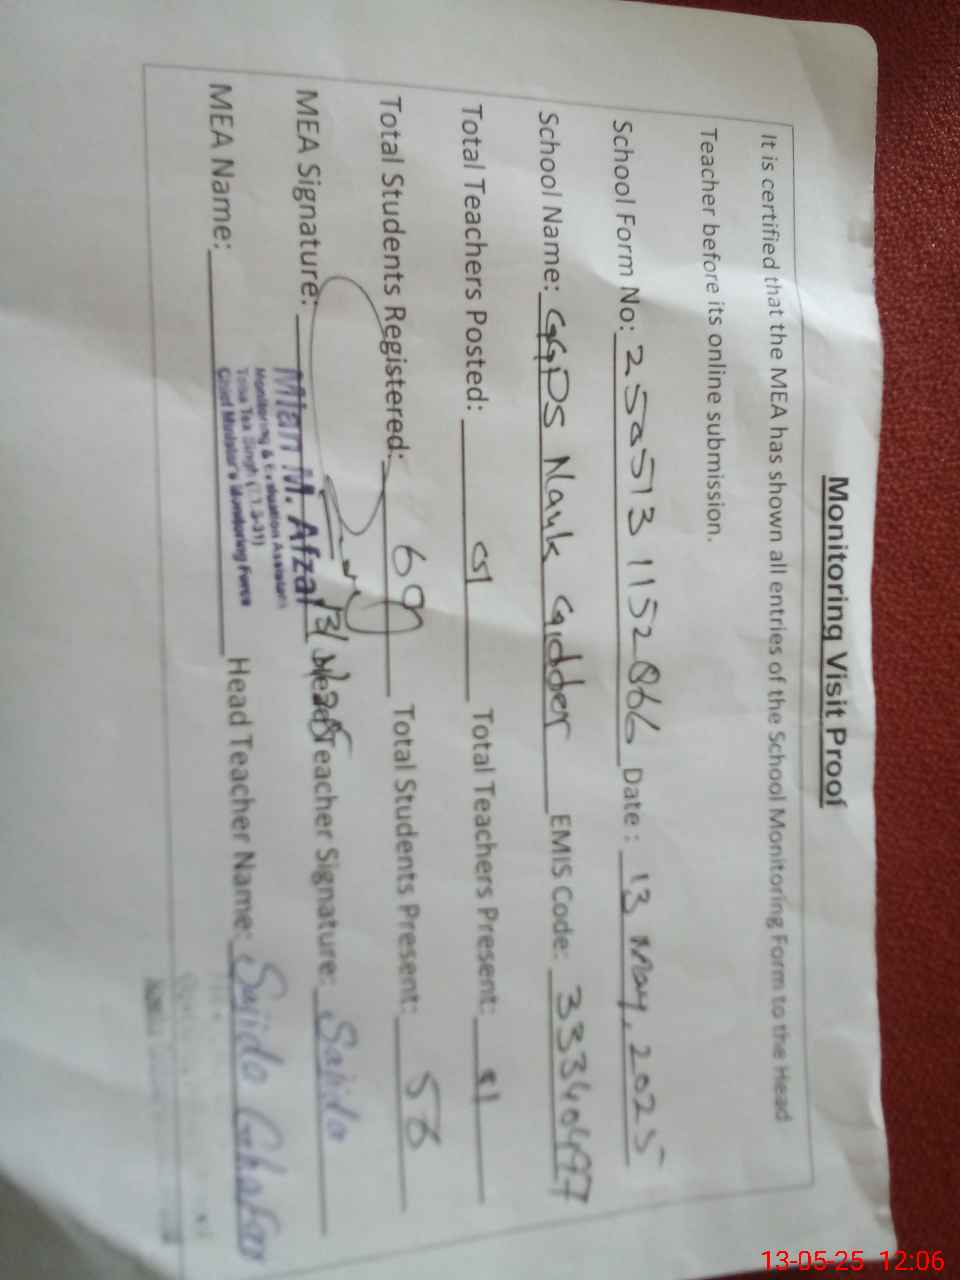 Monitoring Visit Proof
It is certified that the MEA has shown all entries of the School Monitoring Form to the Head
Teacher before its online submission.
School Form No: 250513 1152866 Date : 13 May, 2025
School Name: GGPS Nauk Gidder EMIS Code: 33340497
Total Teachers Posted: Total Teachers Present:
Total Students Registered: 69 Total Students Present: 58
MEA Signature: 13/5/25 Head Teacher Signature: Sajida
Mian M. Afzal
Monitoring & Evaluation Assistant
Toba Tek Singh
Chief Minister's Monitoring Force
MEA Name: Head Teacher Name: Sajida
13-05-25 12:06